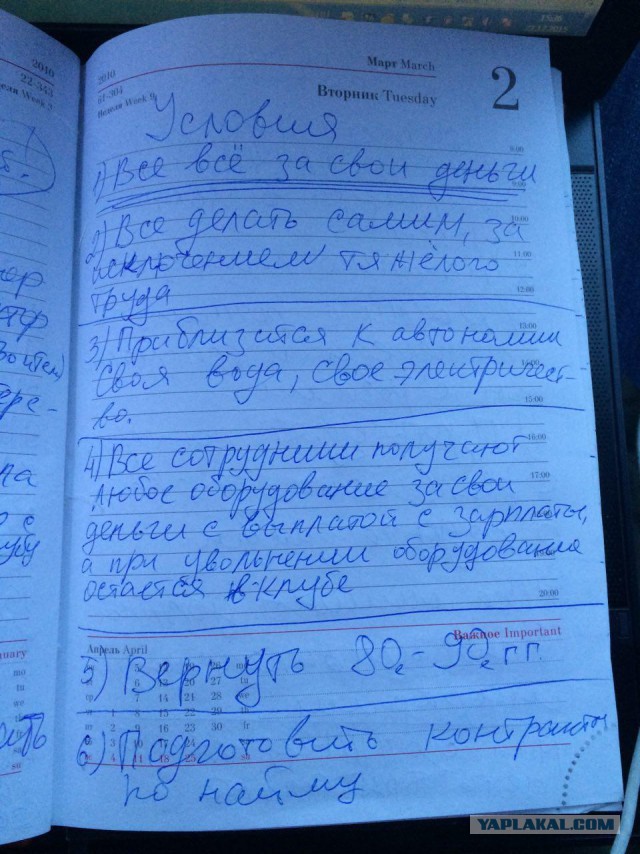 2010
22-343
Недели Week 3
2010
61-304
Недели Week 9
Март March
Вторник Tuesday
2
Условия
1) Все всё за свои деньги
2) Все делать самим, за
исключением тяжёлого
труда
3) Приблизится к автономии
Своя вода, свое электричест-
во.
4) Все сотрудники получают
любое оборудование за свои
деньги с выплатой с зарплаты,
а при увольнении оборудование
остаётся в клубе
9:00
10:00
11:00
12:00
15:00
16:00
17:00
20:00
Важное Important
Апрель April
5) Вернуть 80е-90е гг.
6) Подготовить контракты
по найму
YAPLAKAL.COM